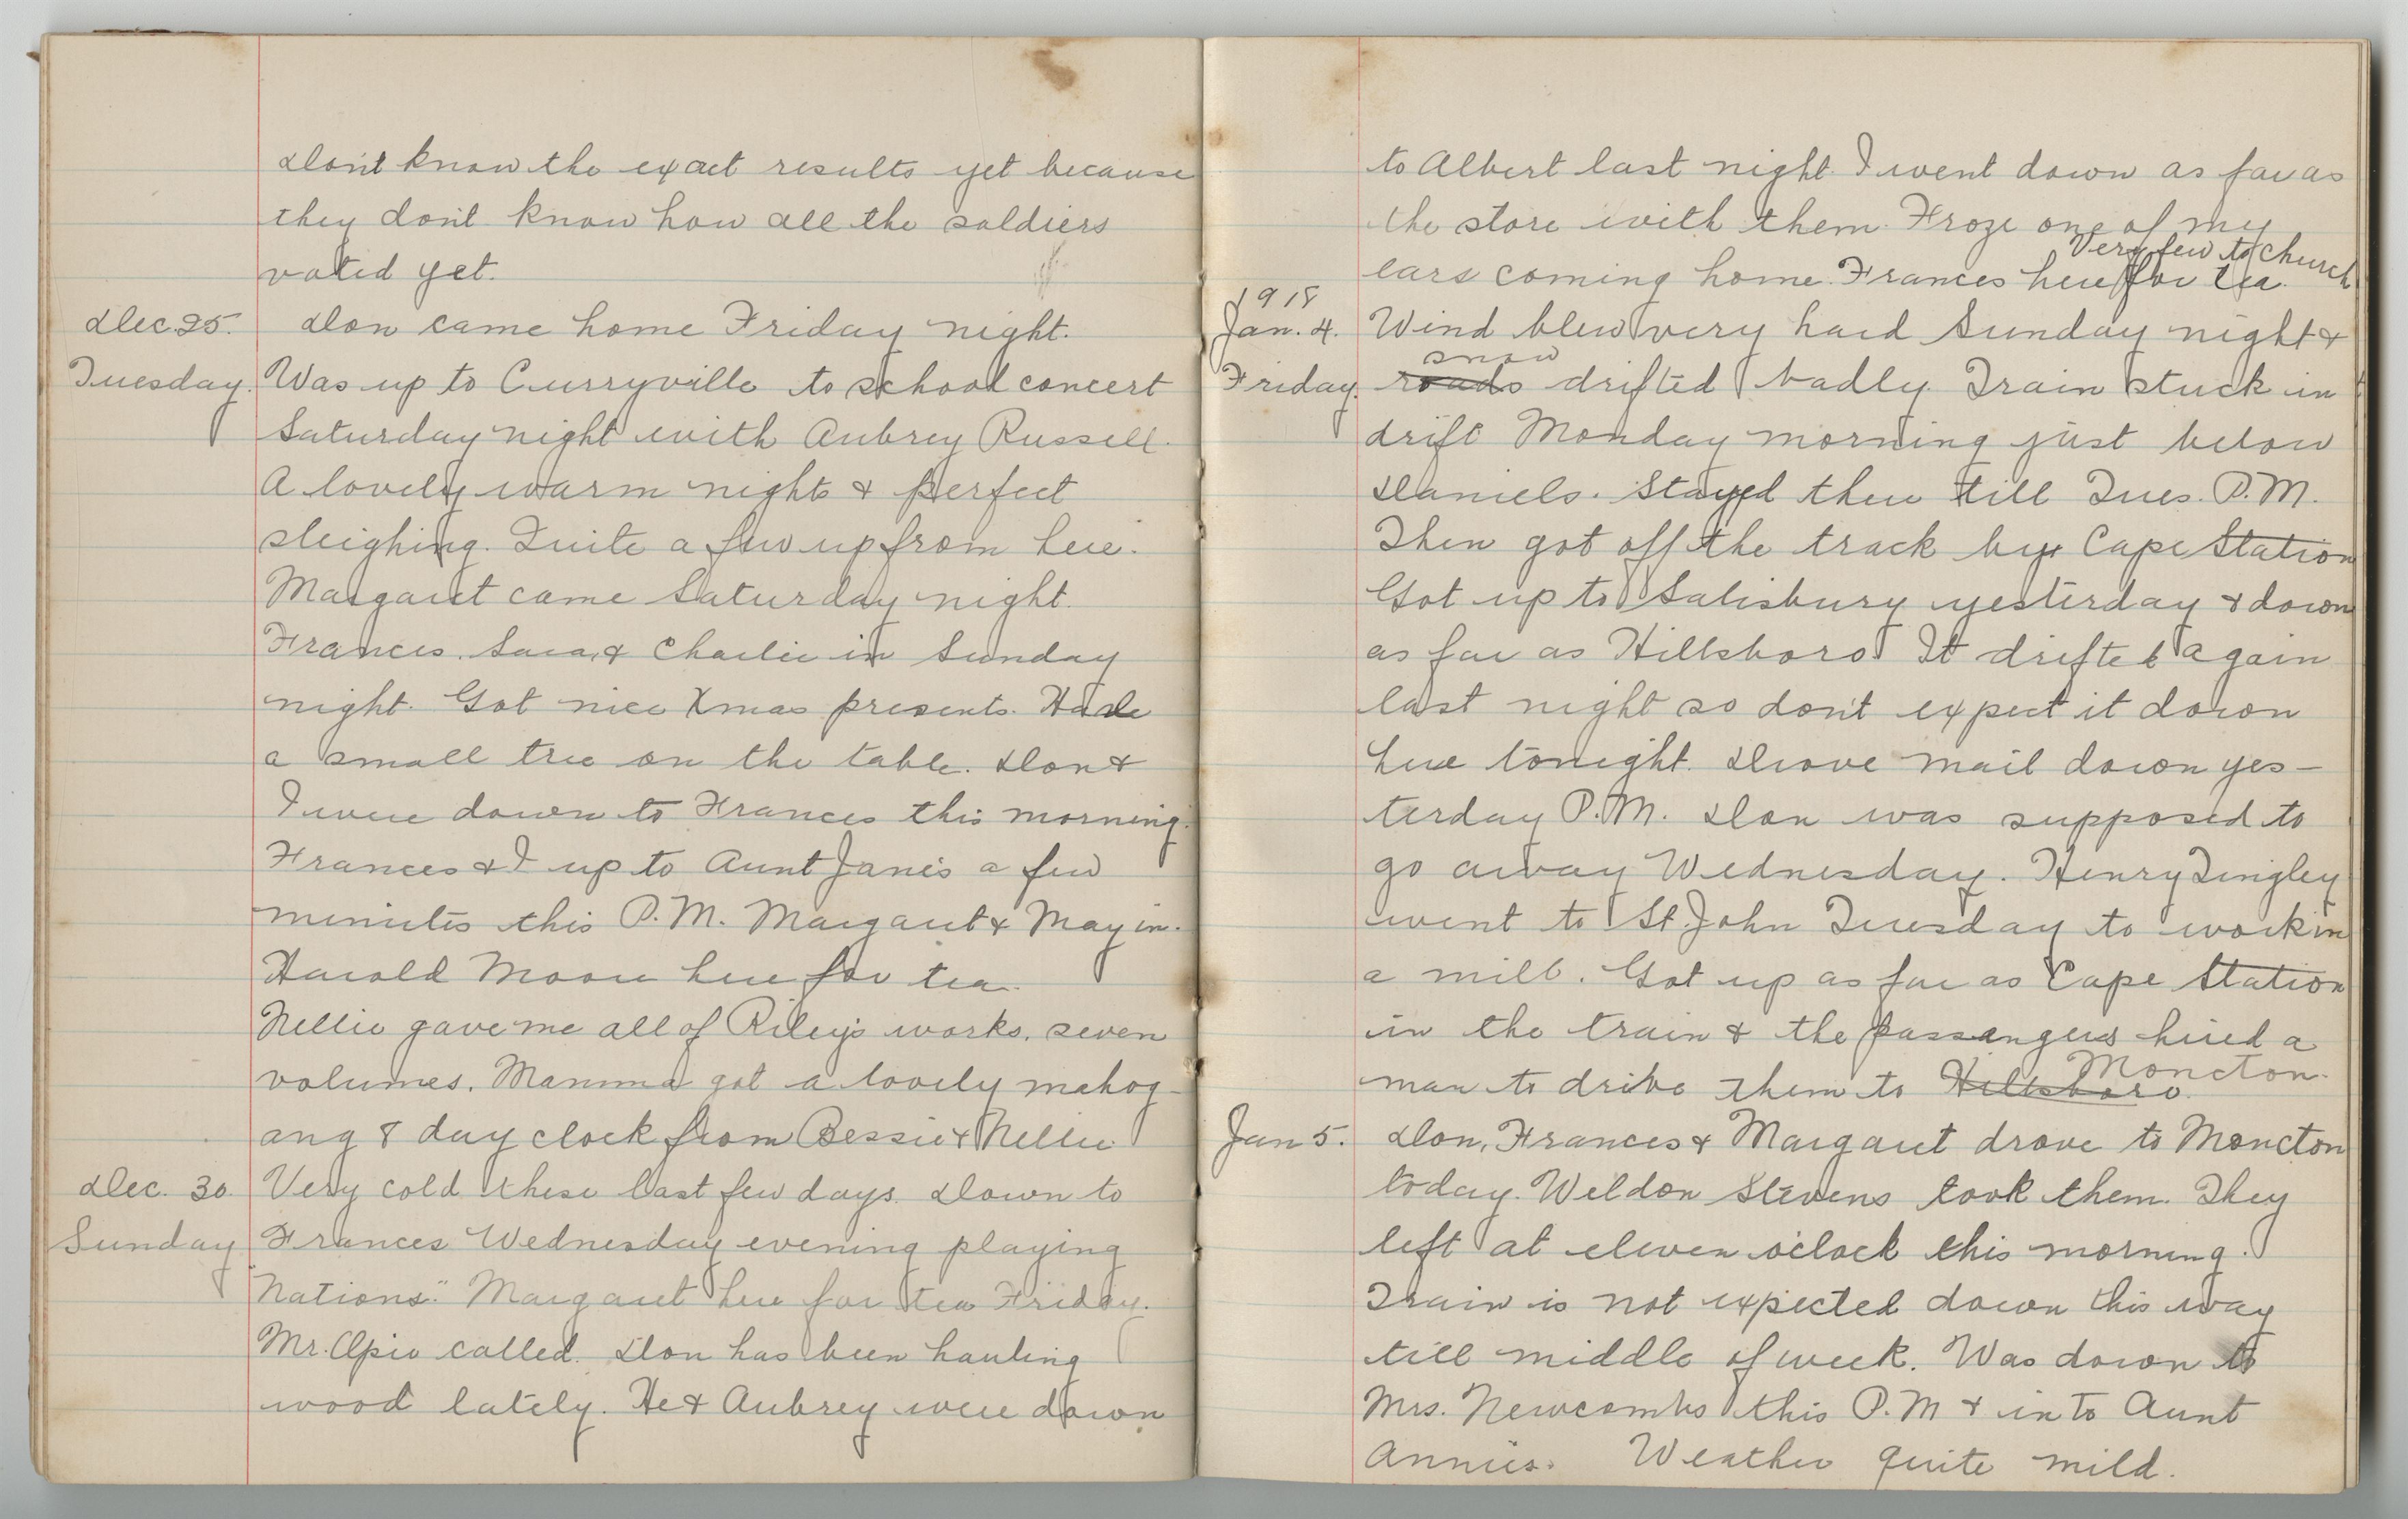 Don't know the exact results yet because
they don't know how all the soldiers
voted yet.
Dec. 25. Don came home Friday night.
Tuesday. Was up to Curryville to school concert
Saturday night with Aubrey Russell.
A lovely warm night & perfect
sleighing. Quite a few up from here.
Margaret came Saturday night.
Frances, Sara, & Charlie in Sunday
night. Got nice Xmas presents. Had
a small tree on the table. Don &
I were down to Frances this morning.
Frances & I up to Aunt Janie's a few
minutes this P.M. Margaret & May in.
Harold Moore here for tea.
Nellie gave me all of Riley's works, seven
volumes. Mamma got a lovely mahog-
any 8 day clock from Bessie & Nellie.
Dec. 30. Very cold these last few days. Down to
Sunday Frances Wednesday evening playing
"Nations." Margaret here for tea Friday.
Mr. Opie called. Don has been hauling
wood lately. He & Aubrey were down
to Albert last night. I went down as far as
the store with them. Froze one of my
Very few to church
ears coming home. Frances here for tea.
1918
Jan. 4. Wind blew very hard Sunday night &
snow
Friday. roads drifted badly. Train stuck in
drift Monday morning just below
Daniels. Stayed there till Tues. P.M.
Then got off the track by Cape Station
Got up to Salisbury yesterday & down
as far as Hillsboro. It drifted again
last night so don't expect it down
here tonight. Drove mail down yes-
terday P.M. Don was supposed to
go away Wednesday. Henry Tingley
went to St. John Tuesday to work in
a mill. Got up as far as Cape Station
in the train & the passangers hired a
Moncton.
man to drive them to Hillsboro.
Jan 5. Don, Frances & Margaret drove to Moncton
today. Weldon Stevens took them. They
left at eleven o'clock this morning.
Train is not expected down this way
till middle of week. Was down to
Mrs. Newcombs this P.M & in to Aunt
Annie's. Weather quite mild.